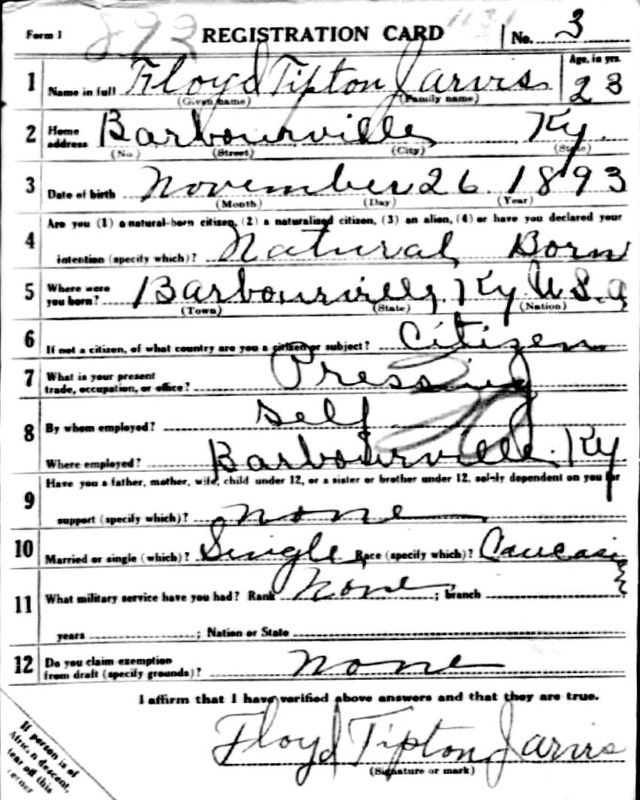 Form 1 893 REGISTRATION CARD No. 3
1 Name in full Floyd Tipton Jarvis Age, in yrs. 23
(Given name) (Family name)
2 Home address Barbourville Ky.
(No.) (Street) (City) (State)
3 Date of birth November 26 1893
(Month) (Day) (Year)
4 Are you (1) a natural-born citizen, (2) a naturalized citizen, (3) an alien, (4) or have you declared your
intention (specify which)? Natural Born
5 Where were you born? Barbourville, Ky U.S.a
(Town) (State) (Nation)
6 If not a citizen, of what country are you a citizen or subject? Citizen
7 What is your present trade, occupation, or office? Pressing
8 By whom employed? Self
Where employed? Barbourville. Ky
9 Have you a father, mother, wife, child under 12, or a sister or brother under 12, solely dependent on you for
support (specify which)? none
10 Married or single (which)? Single Race (specify which)? Caucasi
11 What military service have you had? Rank None ; branch
years ; Nation or State
12 Do you claim exemption from draft (specify grounds)? none
I affirm that I have verified above answers and that they are true.
Floyd Tipton Jarvis
(Signature or mark)
If person is of
African descent,
tear off this
corner